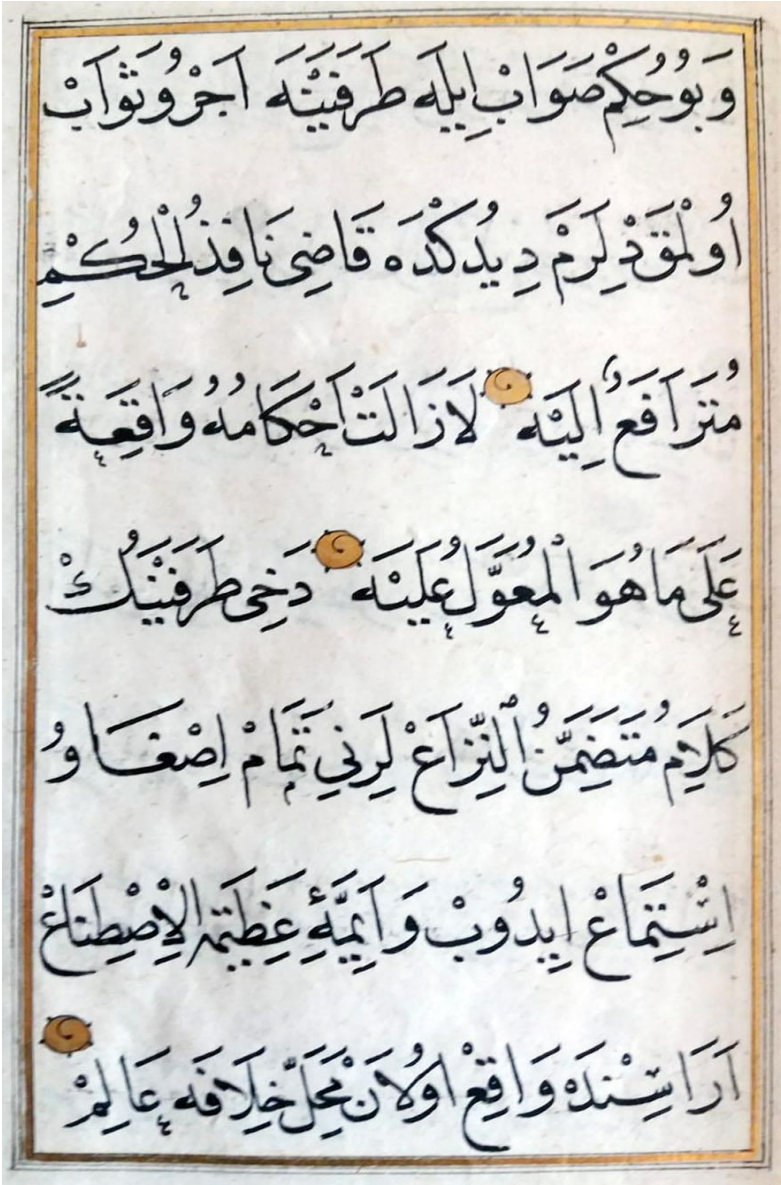 وَبُو حُكِمْ صَوَابْ اِيلَه طَرَفَيْنَه اَجْرُ و ثَوَابْ
اُولْمَقْ دِلَرَمْ دِيُدكْدَه قَاضِى نَافِذُ الْحُكْمِ
مُتَرَافَعٌ اِلَيْه لَازَالَتْ اَحْكَامُهُ وَاقِعَةً
عَلَى مَا هُوَ الْمُعَوَّلُ عَلَيْه دَخِى طَرَفَيْنِكْ
كَلَامِ مُتَضَمِّنُ النِّزَاعْ لَرِنِي تَمَامْ اِصْغَا وُ
اِسْتِمَاعْ اِيدُوبْ وَ اَيِمَّۀِ عَظِيمَةُ الْاِصْطِنَاعْ
اَرَاسِنْدَه وَاقِعْ اوُلَانْ مَحَلِّ خِلَافَه عَالِمْ